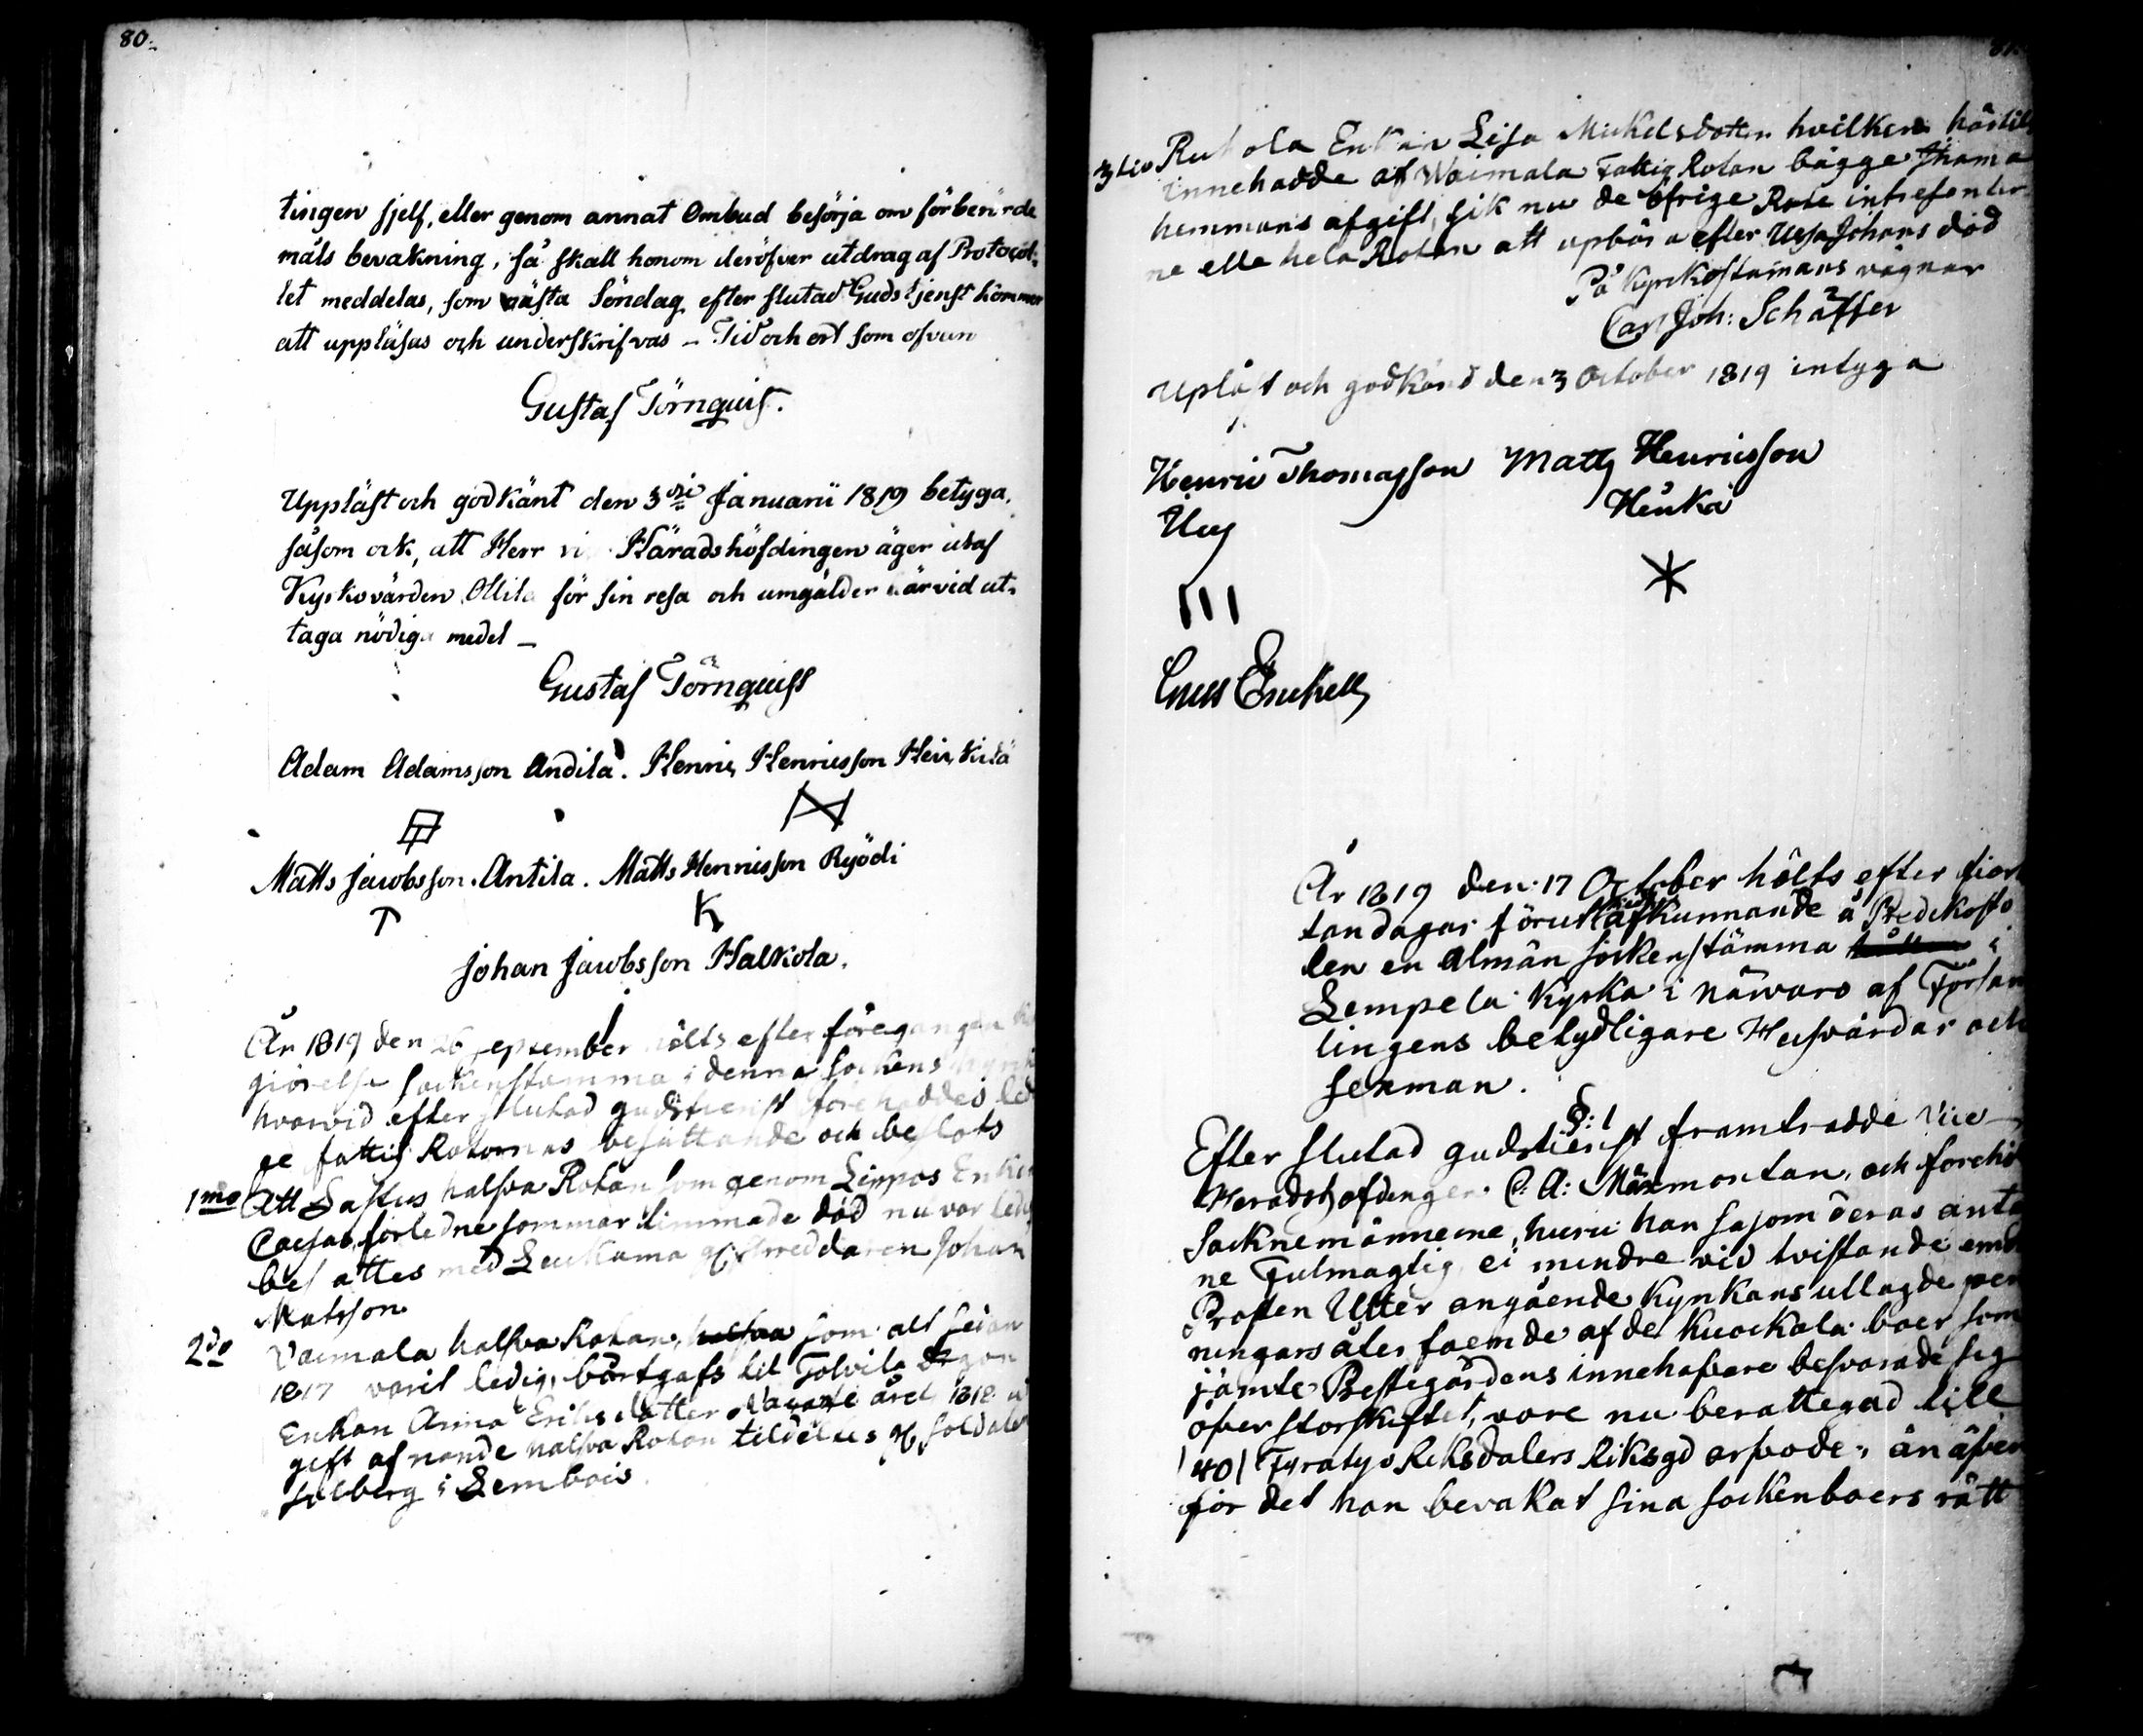 80.
tingen sjelf, eller genom annat Ombud besörja om förberörde
måls bevakning, så skall honom deröfver utdrag af Protocol-
let meddelas, som nästa Söndag efter slutad Gudstjenst kommer
att uppläsas och underskrifvas – Tid och ort som ofvan
Gustaf Törnquist.
Uppläst och godkänt den 3die Januarii 1819 betyga,
såsom ock, att Herr vi Häradshöfdingen äger utaf
Kyrkovärden Ollila för sin resa och umgälder härvid ut-
taga nödiga medel –
Gustaf Törnquist
Adam Adamsson Andila. Henric Henricsson Heickilä
Matts Jacobsson Antila. Matts Henricsson Ryödi
K
Johan Jacobsson Halkola.
År 1819 den 26 September hölts efter föregången
giörelse sockenstämma i denna Sockens
hvarvid efter slutad gudstienst förehaddes led
ge fattig Rotornas besättande och beslöts
1mo Att Sastus halfva Rotan som genom Lippos Enkan
Caisas förledne sommar timmade död nu var led
besattes med Leukama Johan
Matsson.
2do Vaimala halfva Rotan, som alt sedan
1817 varit ledig, bortgafs til Tolvila
Enkan Anna Eriksdotter året 1818
gift af nande halfva Rotan tildeltes Soldaten
Solberg i Lembois
3tio Rukola Enkan Lisa Mickelsdotter hvilken härtils
innehadde af Waimala Fattig Rotan bägge
hemmans afgift, fik nu de öfrige Rote intresenter
ne elle hela Rotan att upbära efter Johans död
På Kyrkostämans vägnar
Carl Joh: Schäffer
Upläst och godkänd den 3 October 1819 intyga
Henric Thomasson Matts Henricsson
Heuka
III
Enckell
År 1819 den 17 October hölts efter fior
tan dagar förut afkunnande å Predikosto
len en almän sockenstämma i
Lempela Kyrka i närvaro af Försam
lingens betydligare Husvärdar och
sexman.
§: 1
Efter slutad gudstienst framträdde Vice
Heradshöfdingen C: A: och forehöl
Socknemännerne, huru han såsom deras anta
ne Fulmagtig ei mindre vid tvistande emot
Prosten Utter angående Kyrkans utlagde pen
ningars återfaende af de Kuockala boer som
jämte Prestegårdens innehafvare besvarade sig
öfver storskiftet, vore nu berättegad till
/40/ Fyratyo Riksdalers Riksgd arfvode, än äfven
för det han bevakat sina sockenboers rätt